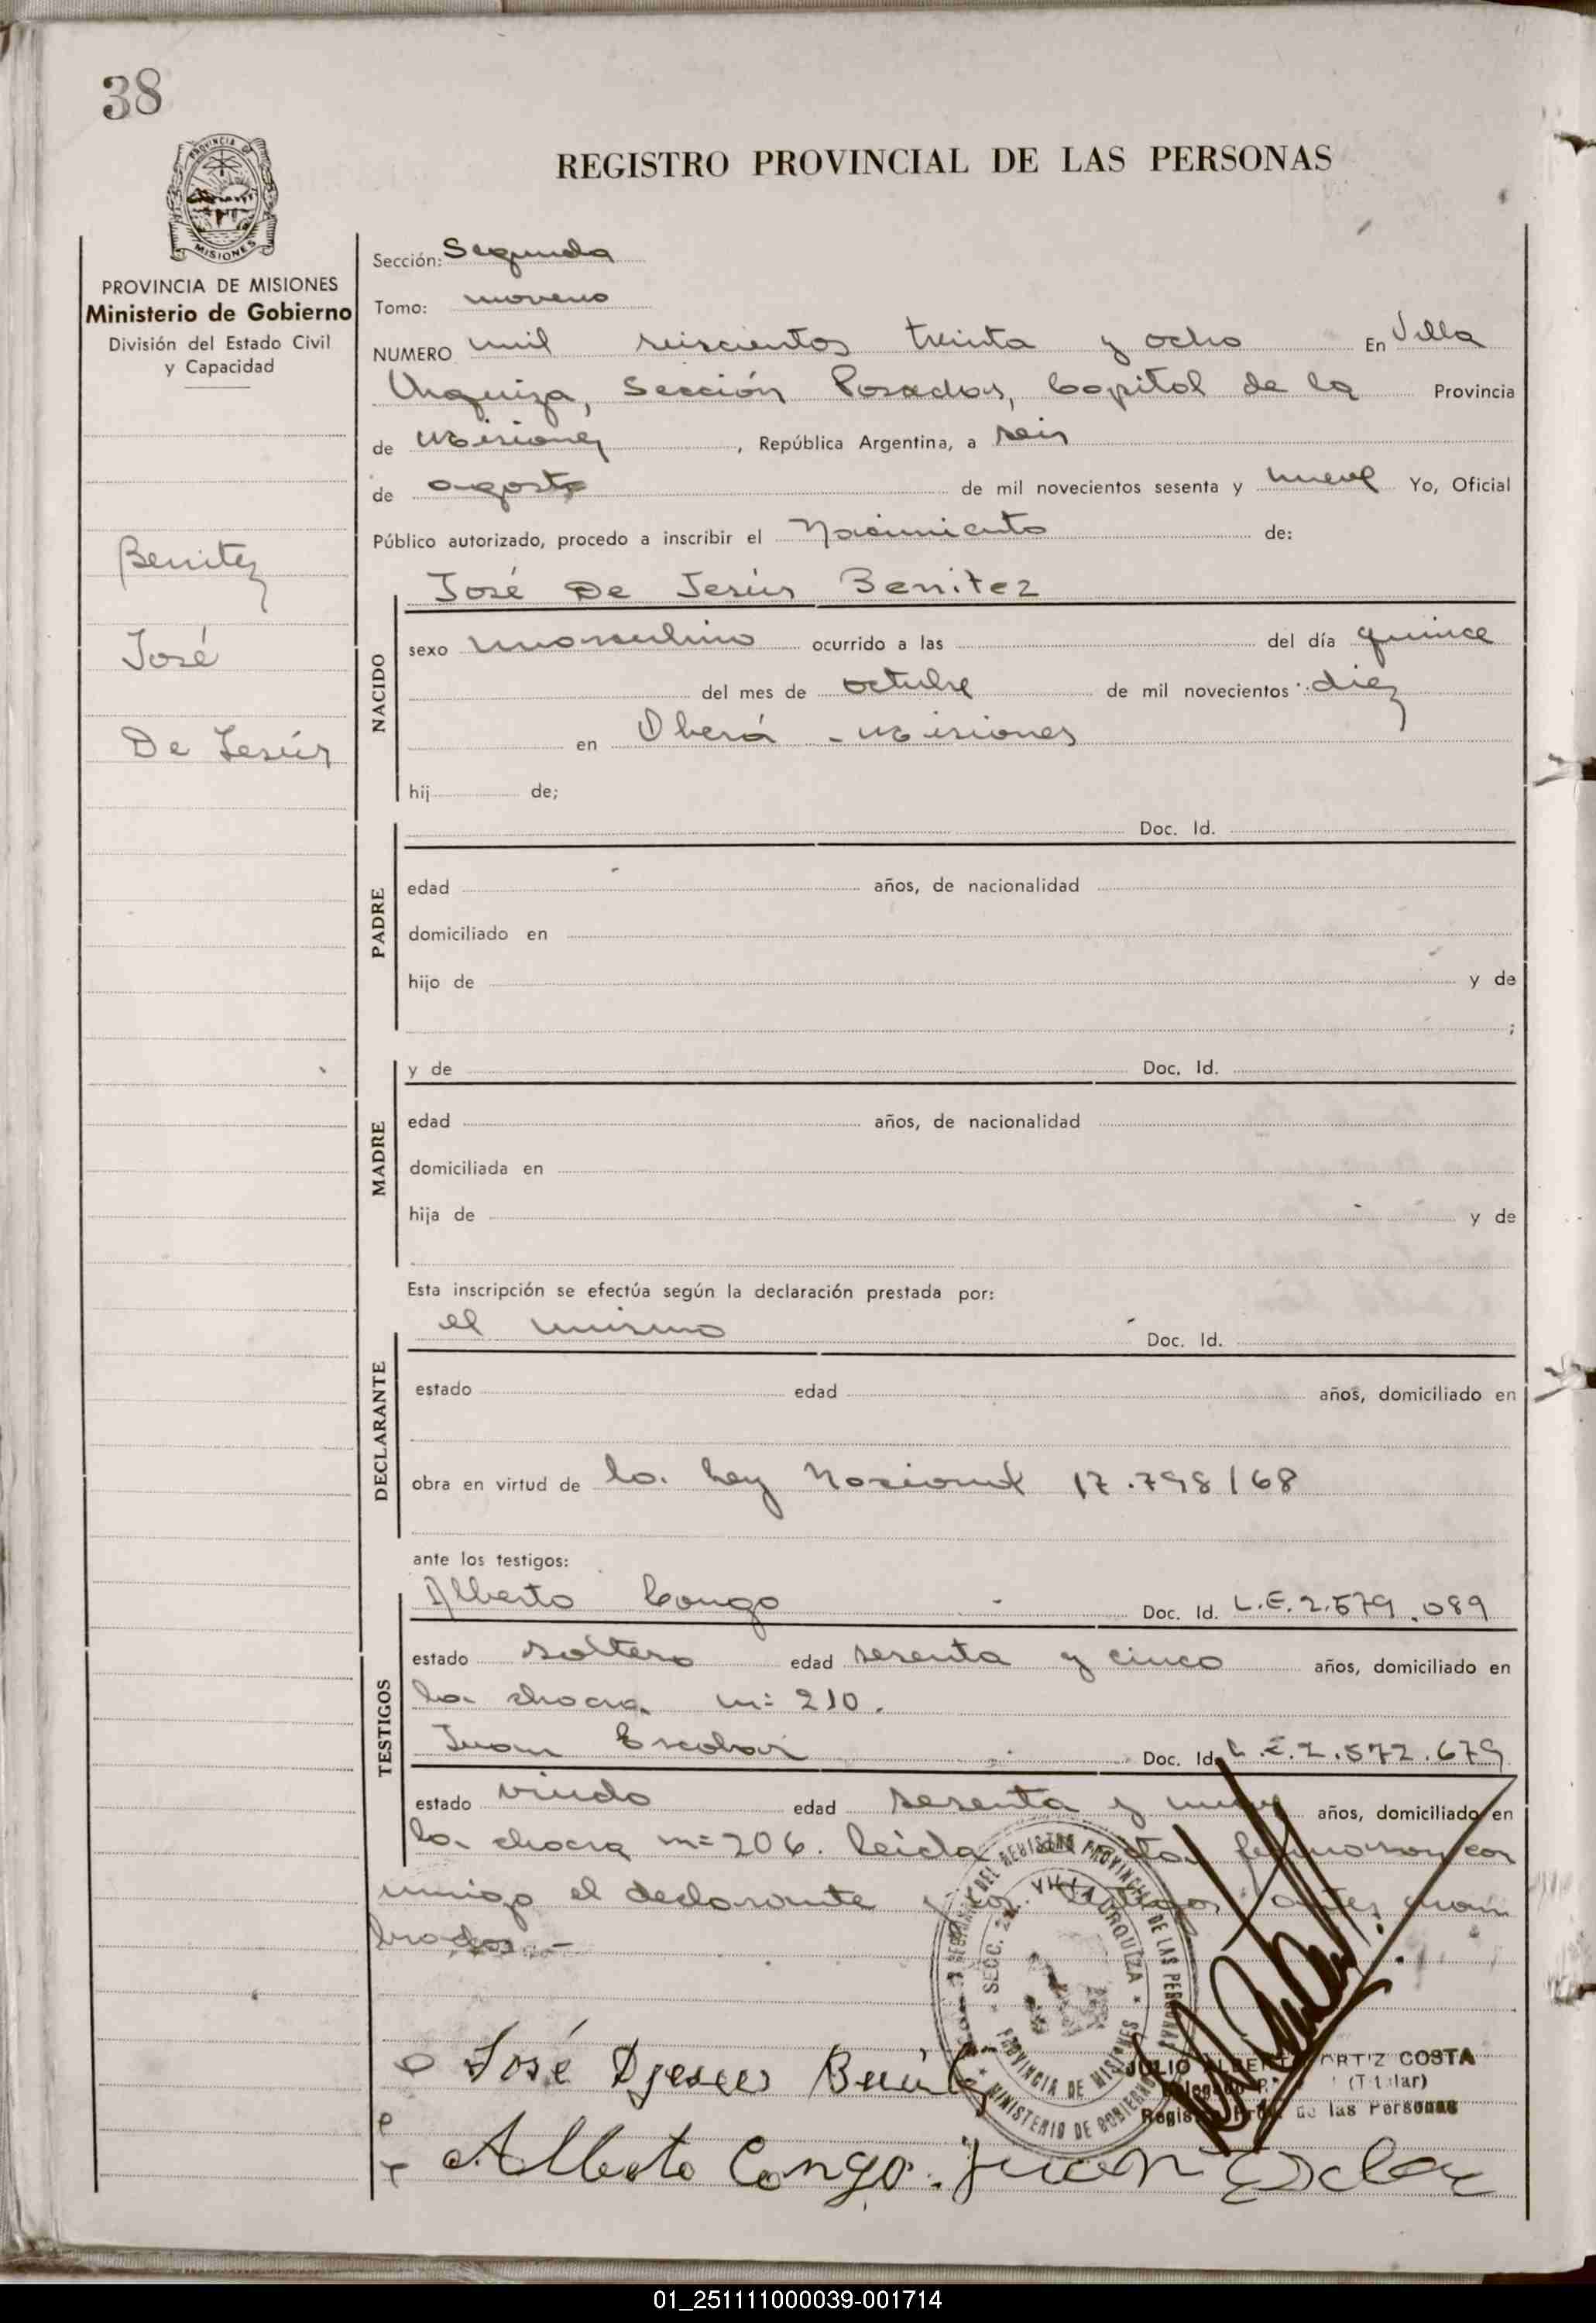 38
PROVINCIA DE
MISIONES
REGISTRO PROVINCIAL DE LAS PERSONAS
PROVINCIA DE MISIONES
Ministerio de Gobierno
División del Estado Civil
y Capacidad
Benitez
José
De Jesús
Sección: Segunda
Tomo: moreno
NUMERO mil seiscientos treinta y ocho En Villa
Urquiza, Sección Posadas, Capital de la Provincia
de Misiones, República Argentina, a seis
de agosto de mil novecientos sesenta y nueve Yo, Oficial
Público autorizado, procedo a inscribir el Nacimiento de:
José De Jesús Benitez
NACIDO
sexo masculino ocurrido a las del día quince
del mes de octubre de mil novecientos diez
en Oberá - Misiones
hij de;
PADRE
Doc. Id.
edad años, de nacionalidad
domiciliado en
hijo de y de
;
MADRE
y de Doc. Id.
edad años, de nacionalidad
domiciliada en
hija de y de
Esta inscripción se efectúa según la declaración prestada por:
DECLARANTE
el mismo Doc. Id.
estado edad años, domiciliado en
obra en virtud de la Ley Nacional 17.798/68
ante los testigos:
TESTIGOS
Alberto Congo Doc. Id. L.E.2.579.089
estado soltero edad sesenta y cinco años, domiciliado en
la chacra n= 210.
Juan Escobar Doc. Id. L.E.2.572.679
estado viudo edad sesenta y años, domiciliado en
la chacra n=206. Leida el acta, firmaron con
migo el declarante y los testigos antes nom
brados.-
SECC. 2a. VILLA URQUIZA
PROVINCIA DE MISIONES
DEL REGISTRO PROVINCIAL DE LAS PERSONAS
MINISTERIO DE GOBIERNO
José Djesus Benitez
JULIO ALBERTO ORTIZ COSTA
Delegado (Titular)
Registro Prov. de las Personas
Alberto Congo. Juan
01_251111000039-001714